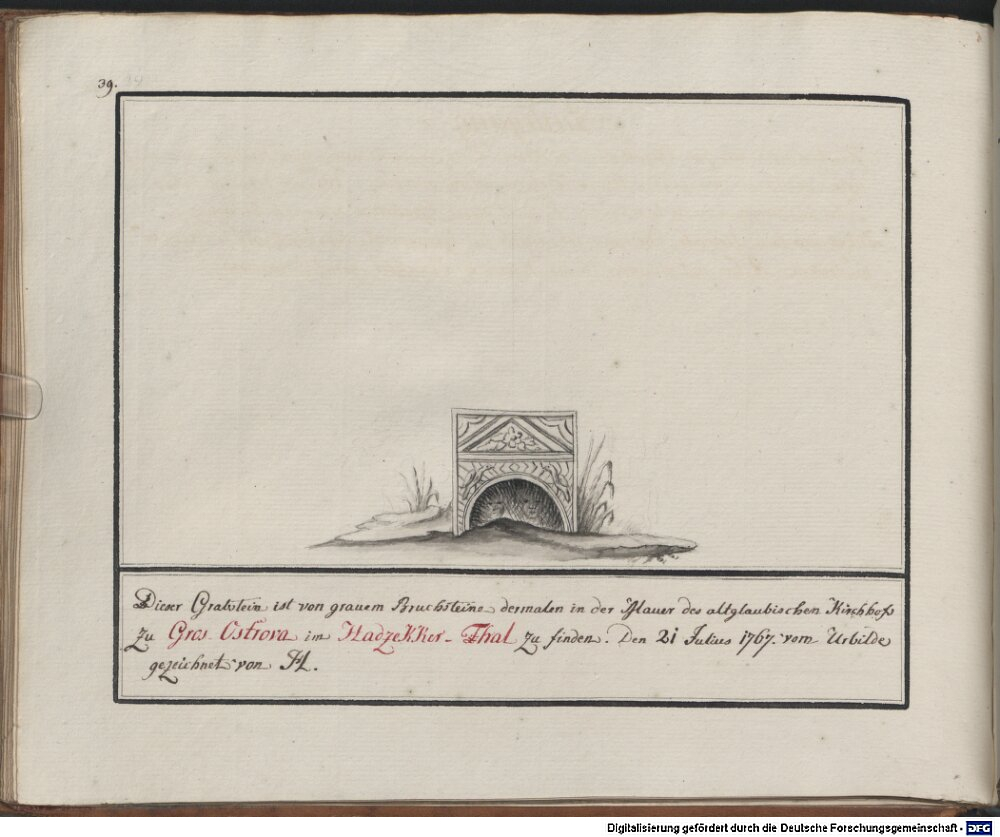 39.
Dieser Grabstein ist von grauem Bruchsteine dermalen in der Mauer des altglaubischen Kirchhofs
zu Gros Ostrova im Hadzekker-Thal zu finden. Den 21 Julius 1767. vom Urbilde
gezeichnet von
Digitalisierung gefördert durch die Deutsche Forschungsgemeinschaft - DFG